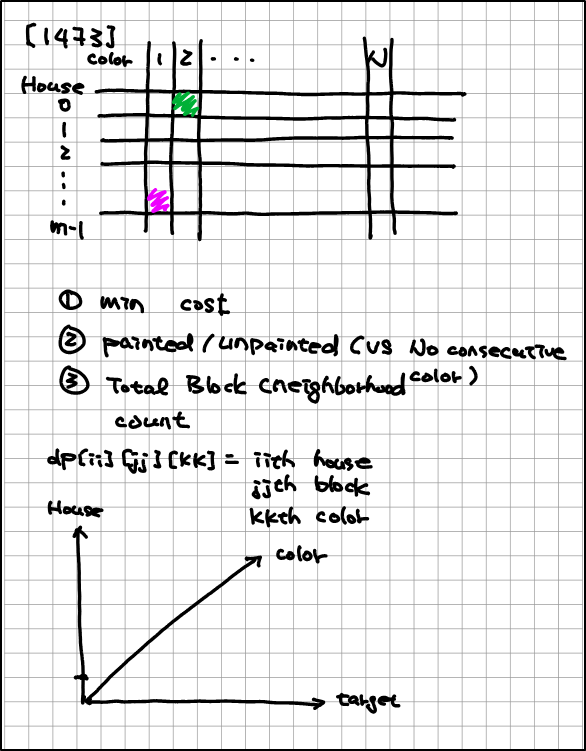 [1473]
color 1 2 . . . N
House
0
1
2
m-1
① min cost
② painted / unpainted (vs No consecutive
color)
③ Total Block (neighborhood
count
dp[ii][jj][kk] = iith house
jjth block
kkth color
House
color
target